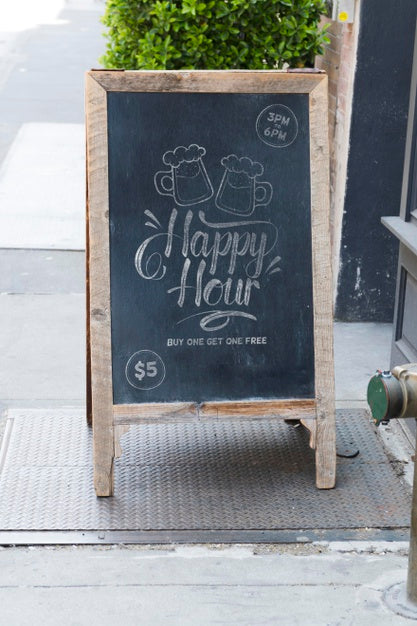 3PM
TO
6PM
Happy
Hour
BUY ONE GET ONE FREE
$5